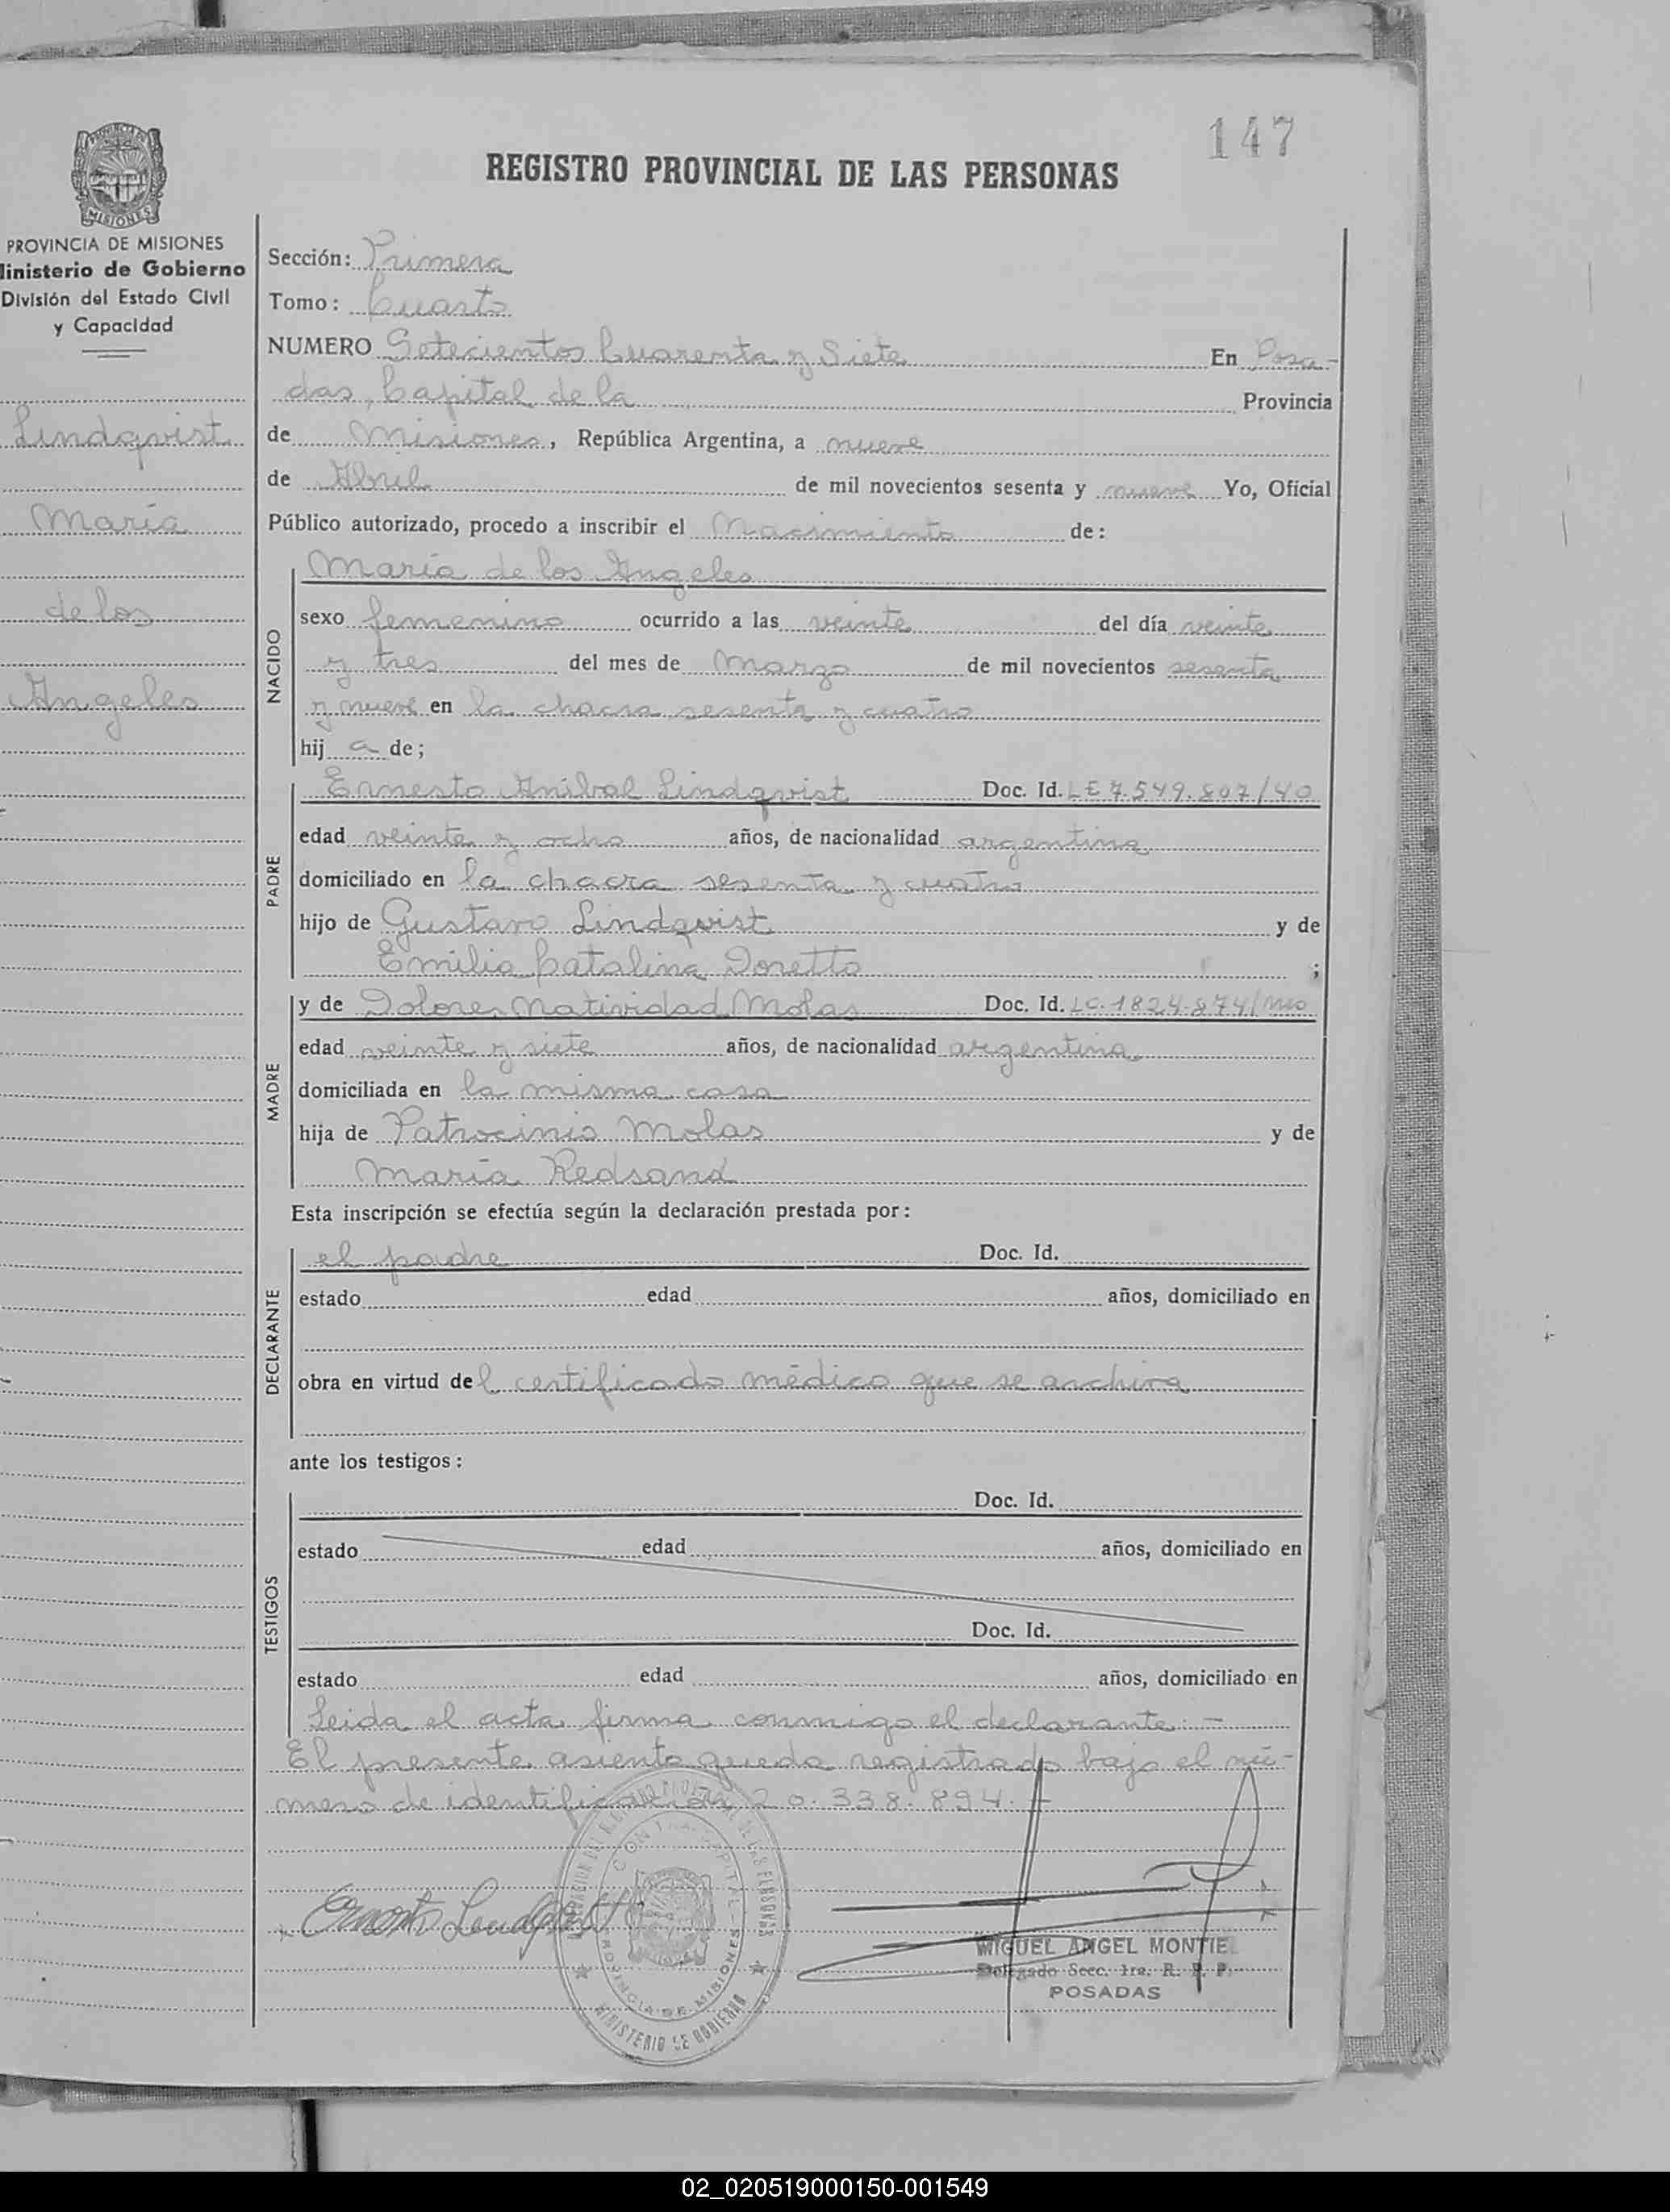 147
REGISTRO PROVINCIAL DE LAS PERSONAS
PROVINCIA DE
MISIONES
PROVINCIA DE MISIONES
inisterio de Gobierno
División del Estado Civil
y Capacidad
Lindqvist
María
de los
Angeles
Sección: Primera
Tomo: Cuarto
NUMERO Setecientos Cuarenta y Siete En Posa-
das, Capital de la Provincia
de Misiones, República Argentina, a nueve
de Abril de mil novecientos sesenta y nueve Yo, Oficial
Público autorizado, procedo a inscribir el Nacimiento de:
NACIDO
María de los Angeles
sexo femenino ocurrido a las veinte del día veinte
y tres del mes de Marzo de mil novecientos sesenta
y nueve en la chacra sesenta y cuatro
hij a de;
PADRE
Ernesto Aníbal Lindqvist Doc. Id. LE 7.549.807/40
edad veinte y ocho años, de nacionalidad argentina
domiciliado en la chacra sesenta y cuatro
hijo de Gustavo Lindqvist y de
Emilia Catalina Doretto ;
MADRE
y de Dolores Natividad Molas Doc. Id. LC. 1824.874/
edad veinte y siete años, de nacionalidad argentina
domiciliada en la misma casa
hija de Patrocinio Molas y de
María Redsand
Esta inscripción se efectúa según la declaración prestada por:
DECLARANTE
el padre Doc. Id.
estado edad años, domiciliado en
obra en virtud del certificado médico que se archiva
ante los testigos:
TESTIGOS
Doc. Id.
estado edad años, domiciliado en
Doc. Id.
estado edad años, domiciliado en
Leida el acta firma conmigo el declarante.-
El presente asiento queda registrado bajo el nú-
mero de identificación 20.338.894.-
Ernesto Lindqvist
PROVINCIA DE MISIONES
MINISTERIO DE GOBIERNO
MIGUEL ANGEL MONTIEL
Delegado Secc. 1ra. R. P. P.
POSADAS
02_020519000150-001549